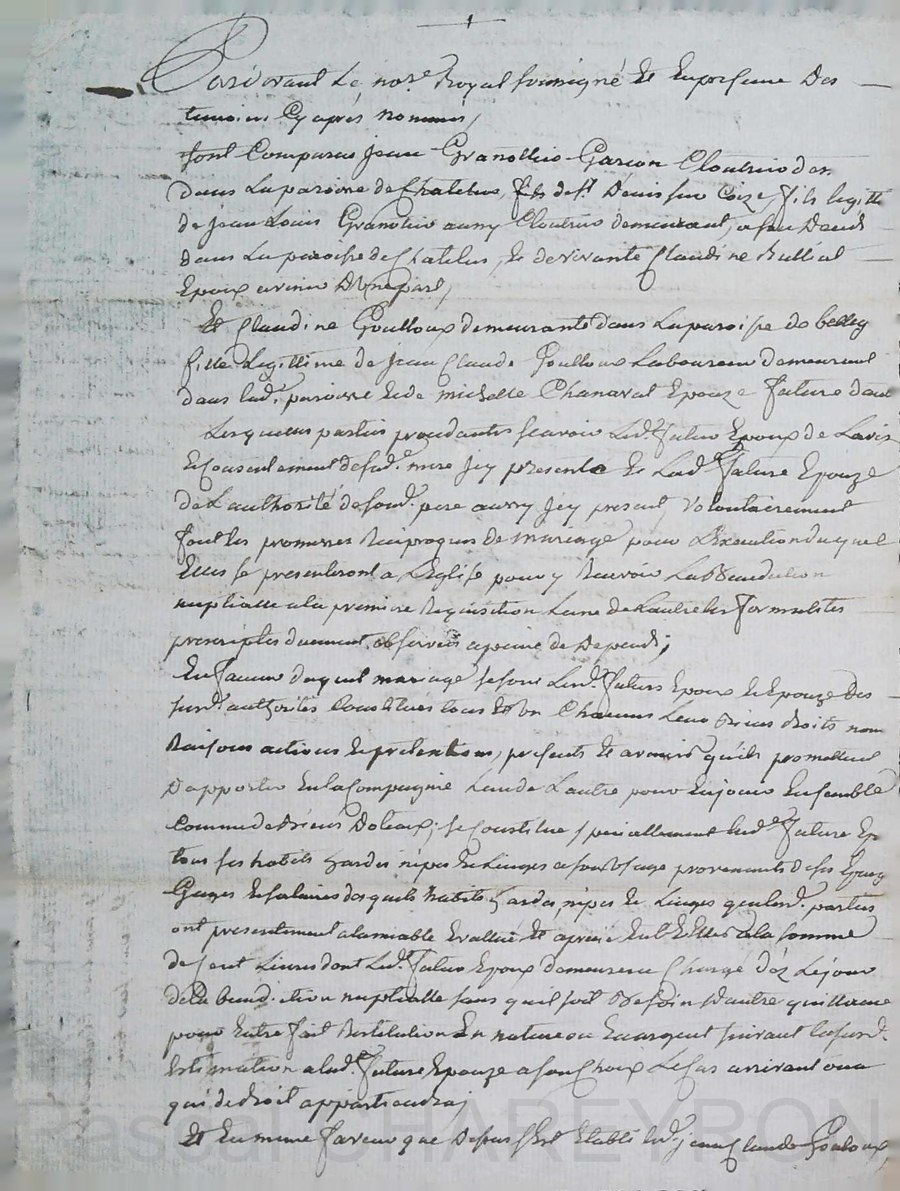 Pardevant Le no.re Royal soussigné Et En presence Des
temoins Cy après nommés,
sont Comparus Jean Granottier Garcon Cloutrier dem
dans La paroisse de Chatelus, fils legitt
de Jean Louis Granotier aussy Cloutrier demeurant
dans La paroisse de Chatelus, Et de vivante Claudine Rullial
Epoux avenir D'Une part,
Et Claudine Goulloux demeurante dans La paroisse de
fille Legittime de Jean Claude Goulloux Laboureur demeurant
dans lad.e paroisse Et de michelle Chanaval Epouze future d'aut
Lesquelles parties procedantes scavoir Led.t futur Epoux de Lavis
Et Consentement de sad.e mere Jcy presente Et Lad.e future Epouze
de L'authorité de sond.t pere aussy Jcy present, Volontairement
font les promesses Reciproques de mariage pour L'Execution duquel
Elles se presenteront a L'Eglise pour y Recevoir La Benediction
nuptialle a la premiere Requisition L'une de L'autre les formalités
prescriptes duement observées a peine de Depends;
En faveur duquel mariage se sont Lesd.ts futurs Epoux Et Epouze des
susd.tes authorités Constitués tous Et Un Chacuns Leurs Biens droits noms
Raisons actions Et pretentions, presents Et avenirs qu'ils promettent
D'apporter En la Compagnie L'un de L'autre pour En jouir Ensemble
Comme de Biens Doteaux; se Constitue speciallement lad.e future Ep
tous ses habits hardes nipes Et Linges a son Usage provenants de ses
Gages Et salaires desquels habits hardes, nipes Et Linges que lesd. parties
ont presentement a l'amiable Evallué Et aprecié Entr'Elles a la somme
de Cent Livres dont Led.t futur Epoux demeurera Chargé dez Le jour
de la benediction nuptialle sans qu'il soit Besoin D'autre quittance
pour Entre fait Restitution En nature ou En argent suivant la susd.
Estimation a lad.e future Epouze a son Choix Le Cas arrivant ou a
qui de droit appartiendra;
Et En meme faveur que Dessus s'est Etabli led. Jean Claude Gouloux,
Pascal CHAREYRON